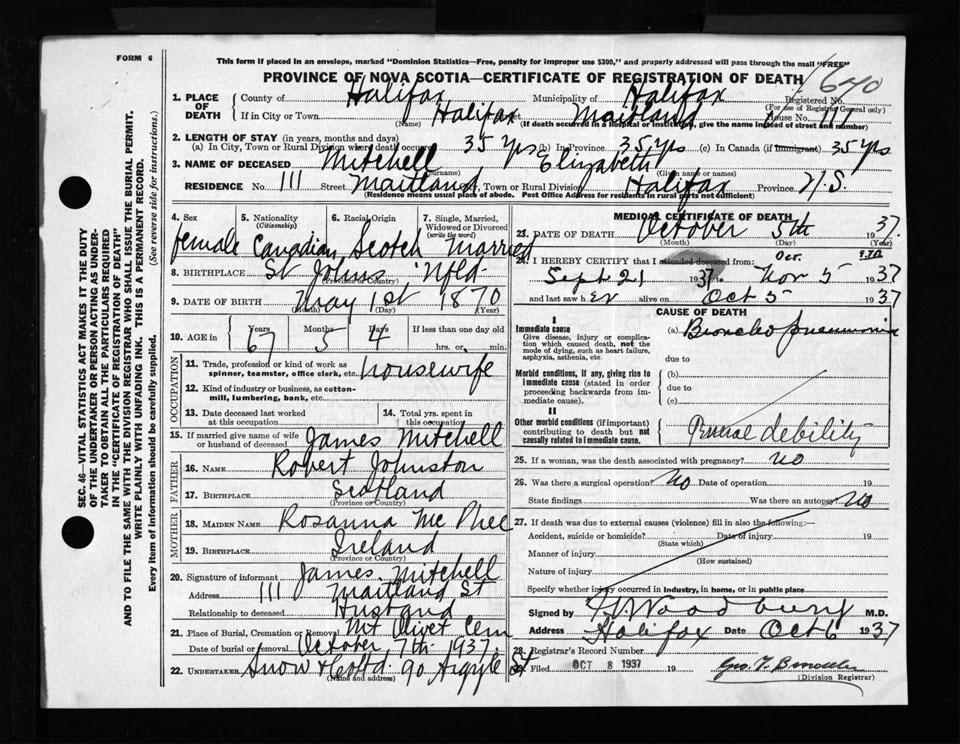 FORM 6
This form if placed in an envelope, marked "Dominion Statistics—Free, penalty for improper use $300," and properly addressed will pass through the mail "FREE"
PROVINCE OF NOVA SCOTIA—CERTIFICATE OF REGISTRATION OF DEATH
1640
1. PLACE OF DEATH County of Halifax Municipality of Halifax Registered No. (For use of Registrar General only)
If in City or Town Halifax (Name) Street Maitland House No. 111
(If death occurred in a hospital or institution, give the name instead of street and number)
2. LENGTH OF STAY (in years, months and days)
(a) In City, Town or Rural Division where death occurred 35 yrs (b) In Province 35 yrs (c) In Canada (if immigrant) 35 yrs
3. NAME OF DECEASED Mitchell Elizabeth
(Surname) (Given name or names)
RESIDENCE No. 111 Street Maitland City, Town or Rural Division Halifax Province N.S.
(Residence means usual place of abode. Post Office Address for residents in rural parts not sufficient)
4. Sex female
5. Nationality (Citizenship) Canadian
6. Racial Origin Scotch
7. Single, Married, Widowed or Divorced (write the word) Married
8. BIRTHPLACE St Johns Nfld.
(Province or Country)
9. DATE OF BIRTH May 1st 1870
(Month) (Day) (Year)
10. AGE in Years 67 Months 5 Days 4 If less than one day old hrs. or min.
OCCUPATION
11. Trade, profession or kind of work as spinner, teamster, office clerk, etc. housewife
12. Kind of industry or business, as cotton-mill, lumbering, bank, etc.
13. Date deceased last worked at this occupation
14. Total yrs. spent in this occupation
15. If married give name of wife or husband of deceased James Mitchell
FATHER
16. NAME Robert Johnston
17. BIRTHPLACE Scotland
MOTHER
18. MAIDEN NAME Rosanna Mc Phee
19. BIRTHPLACE Ireland
(Province or Country)
20. Signature of informant James Mitchell
Address 111 Maitland St
Relationship to deceased Husband
21. Place of Burial, Cremation or Removal Mt Olivet Cem
Date of burial or removal October 7th 1937.
22. UNDERTAKER Snow & Co Ltd. 90 Argyle St
(Name and address)
MEDICAL CERTIFICATE OF DEATH
23. DATE OF DEATH October 5th 1937.
(Month) (Day) (Year)
24. I HEREBY CERTIFY that I attended deceased from: Oct.
Sept 21 1937 to Nov 5 1937
and last saw her alive on Oct 5 1937
CAUSE OF DEATH
I
Immediate cause
Give disease, injury or complication which caused death, not the mode of dying, such as heart failure, asphyxia, asthenia, etc.
(a) Broncho pneumonia
due to
Morbid conditions, if any, giving rise to immediate cause (stated in order proceeding backwards from immediate cause).
(b)
due to
(c)
II
Other morbid conditions (if important) contributing to death but not causally related to immediate cause.
debility
25. If a woman, was the death associated with pregnancy? No
26. Was there a surgical operation? No Date of operation 19
State findings Was there an autopsy? No
27. If death was due to external causes (violence) fill in also the following:—
Accident, suicide or homicide? Date of injury 19
(State which)
Manner of injury
(How sustained)
Nature of injury
Specify whether injury occurred in industry, in home, or in public place
Signed by Woodbury M.D.
Address Halifax Date Oct 6 1937
28. Registrar's Record Number
29. Filed OCT 8 1937 19
(Division Registrar)
SEC. 46—VITAL STATISTICS ACT MAKES IT THE DUTY
OF THE UNDERTAKER OR PERSON ACTING AS UNDERTAKER TO OBTAIN ALL THE PARTICULARS REQUIRED
IN THE "CERTIFICATE OF REGISTRATION OF DEATH"
AND TO FILE THE SAME WITH THE DIVISION REGISTRAR WHO SHALL ISSUE THE BURIAL PERMIT.
WRITE PLAINLY WITH UNFADING INK. THIS IS A PERMANENT RECORD.
Every item of information should be carefully supplied. (See reverse side for instructions.)